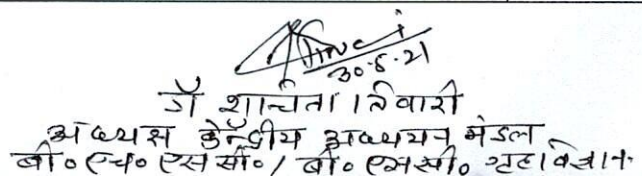 30.8.21
डॉ शान्ता तिवारी
अध्यक्ष केन्द्रीय अध्ययन मंडल
बी० एच० एस सी० / बी० एस सी० गृह विज्ञान